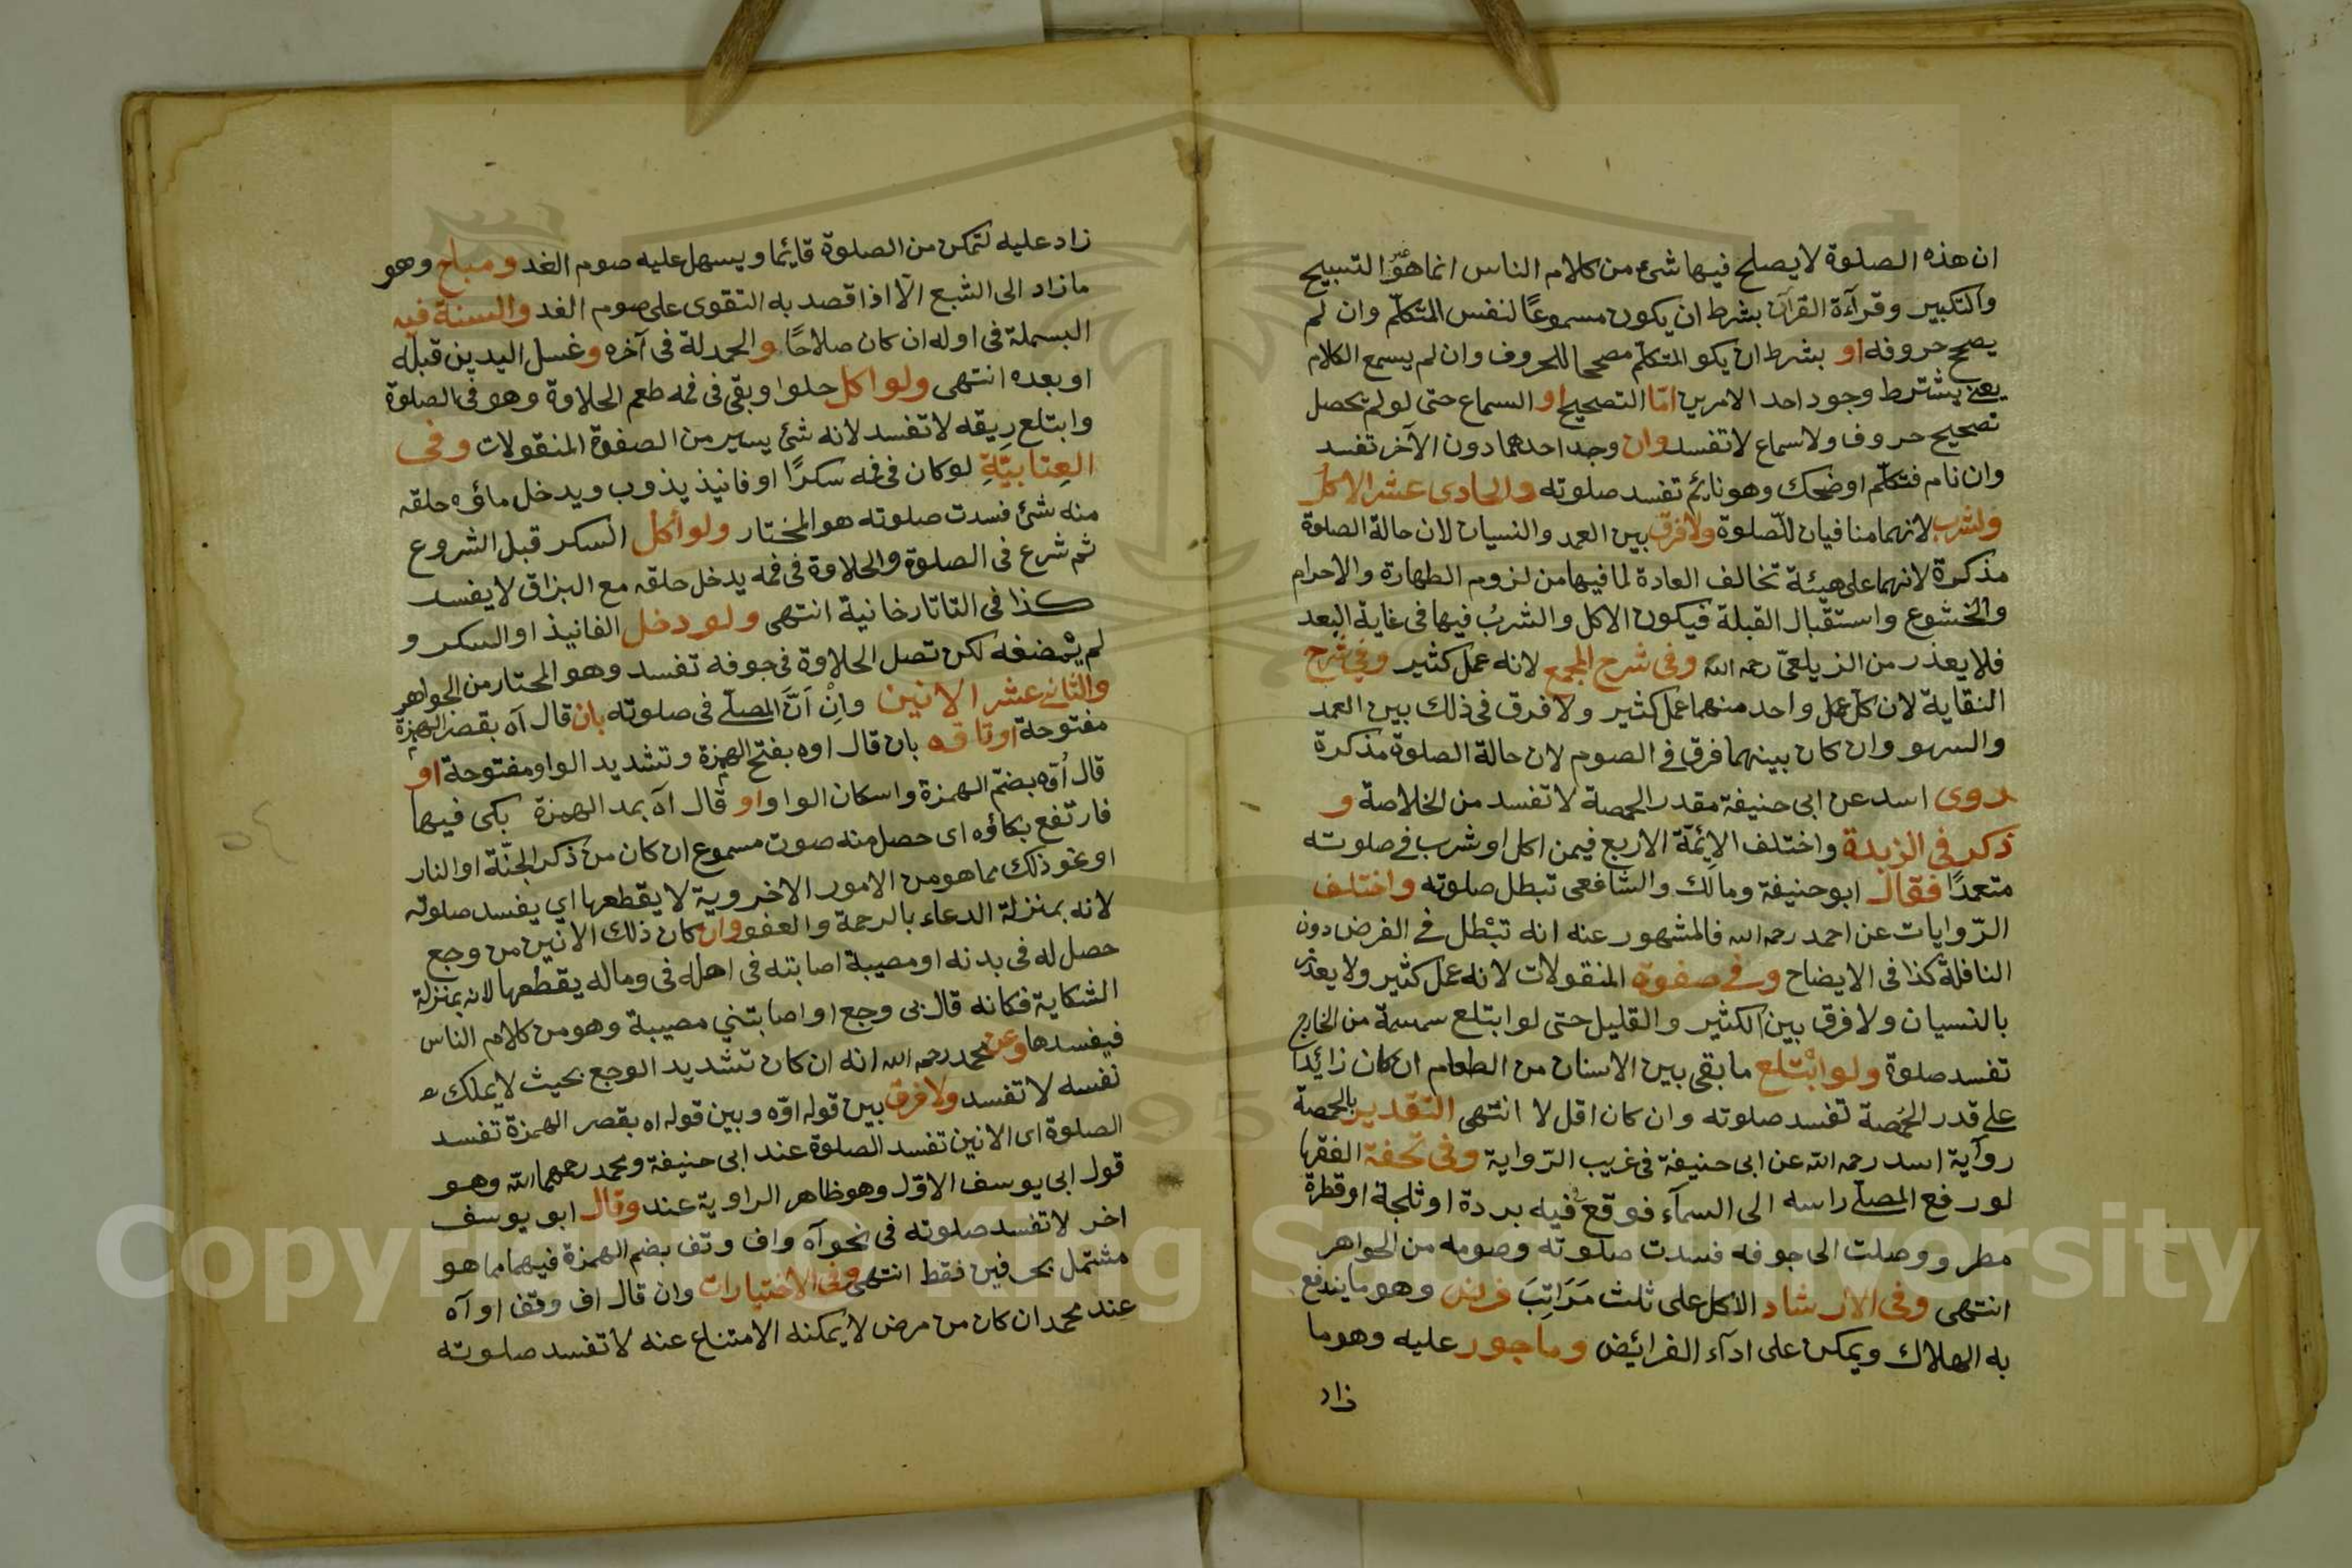 ان هذه الصلوة لا يصلح فيها شئ من كلام الناس انما هو التسبيح
والتكبير وقرآءة القرآن بشرط ان يكون مسموعًا لنفس المتكلّم وان لم
يصح حروفه او بشرط ان يكو المتكلّم مصححا للحروف وان لم يسمع الكلام
يعنے يشترط وجود احد الامرين امّا التصحيح او السماع حتى لو لم يحصل
تصحيح حروف ولا سماع لا تفسد وان وجد احدهما دون الآخر تفسد
وان نام فتكلّم او ضحك وهو نايم تفسد صلوته والحادى عشر الاكل
ولشرب لانهما منافيان للّصلوة ولا فرق بين العمد والنسيان لان حالة الصلوة
مذكرة لانهما على هيئة تخالف العادة لما فيها من لزوم الطهارة والاحرام
والخشوع واستقبال القبلة فيكون الاكل والشرب فيها فى غاية البعد
فلا يعذر من الزيلعىّ رحمه الله وفى شرح المجمع لانه عمل كثير وفى شرح
النقاية لان كل عمل واحد منهما عمل كثير ولا فرق فى ذلك بين العمد
والسهو وان كان بينهما فرق فے الصوم لان حالة الصلوة مذكرة
روى اسد عن ابى حنيفة مقدر الحمصة لا تفسد من الخلاصة و
ذكر فى الزبدة واختلف الائمّة الاربع فيمن اكل او شرب فے صلوته
متعمدًا فقال ابو حنيفة ومالك والشافعى تبطل صلوته واختلف
الرّوايات عن احمد رحمه الله فالمشهور عنه انه تبْطل فے الفرض دون
النافلة كذا فى الايضاح وفے صفوة المنقولات لانه عمل كثير ولا يعذر
بالنسيان ولا فرق بين الكثير والقليل حتى لو ابتلع سمسمة من الخارج
تفسد صلوة ولو ابْتلع ما بقى بين الاسنان من الطعام ان كان زائدًا
علے قدر الحُمصة تفسد صلوته وان كان اقل لا انتهى التقدير بالحمصة
روآية اسد رحمه الله عن ابى حنيفة فى غريب الرّواية وفى تحفة الفقها
لو رفع المصلّے راسه الى السمآء فوقع فيه بردة او ثلجة او قطرة
مطر ووصلت الى جوفه فسدت صلوته وصومه من الجواهر
انتهى وفى الارشاد الاكل على ثلث مَرَاتِبَ فرض وهو ما يندفع
به الهلاك ويمكن على ادآء الفرائض وماجور عليه وهو ما
زاد
زاد عليه لتمكن من الصلوة قايما ويسهل عليه صوم الغد ومباح وهو
ما زاد الى الشبع الّا اذا قصد به التقوى على صوم الغد والسنة فيه
البسملة فى اوله ان كان صلاحًا والحمدلة فى آخره وغسل اليدين قبله
او بعده انتهى ولو اكل حلوا وبقى فى فمه طعم الحلاوة وهو فى الصلوة
وابتلع رِيقه لا تفسد لانه شئ يسير من الصفوة المنقولات وفى
العِتابيَّةِ لو كان فى فمه سكرًا او فانيذ يذوب ويدخل ماؤه حلقه
منه شئ فسدت صلوته هو المختار ولو أكل السكر قبل الشروع
ثم شرع فى الصلوة والحلاوة فى فمه يدخل حلقه مع البزاق لا يفسد
كذا فى التاتارخانية انتهى ولو دخل الفانيذ او السكر و
لم يمْضغه لكن تصل الحلاوة فى جوفه تفسد وهو المختار من الجواهر
والثانے عشر الانين وانْ اَنَّ المصلّے فى صلوته بان قال آه بقصر الهمزة
مفتوحة او تاوه بان قال اوه بفتح الهمزة وتشديد الواو مفتوحة او
قال اُوه بضمّ الهمزة واسكان الواو او قال آه بمد الهمزة بكى فيها
فارتفع بكاؤه اى حصل منه صوت مسموع ان كان من ذكر الجنّة او النار
او نحو ذلك مما هو من الامور الاخروية لا يقطعها اي يفسد صلوته
لانه بمنزلة الدعاء بالرحمة والعفو وان كان ذلك الانين من وجع
حصل له فى بدنه او مصيبة اصابته فى اهله فى وماله يقطعها لانه بمنزلة
الشكاية فكانه قال بى وجع او اصابتني مصيبة وهو من كلام الناس
فيفسدها وعن محمد رحمه الله انه ان كان تشديد الوجع بحيث لا يملك
نفسه لا تفسد ولا فرق بين قوله اوّه وبين قوله اه بقصر الهمزة تفسد
الصلوة اى الانين تفسد الصلوة عند ابى حنيفة ومحمد رحمهما الله وهو
قول ابى يوسف الاوّل وهو ظاهر الراوية عند وقال ابو يوسف
اخر لا تفسد صلوته فى نحو آه واف وتف بضم الهمزة فيهما مما هو
مشتمل بحرفين فقط انتهى وفى الاختيارات وان قال اف وتف او آه
عند محمد ان كان من مرض لا يمكنه الامتناع عنه لا تفسد صلوته
Copyright © King Saud University